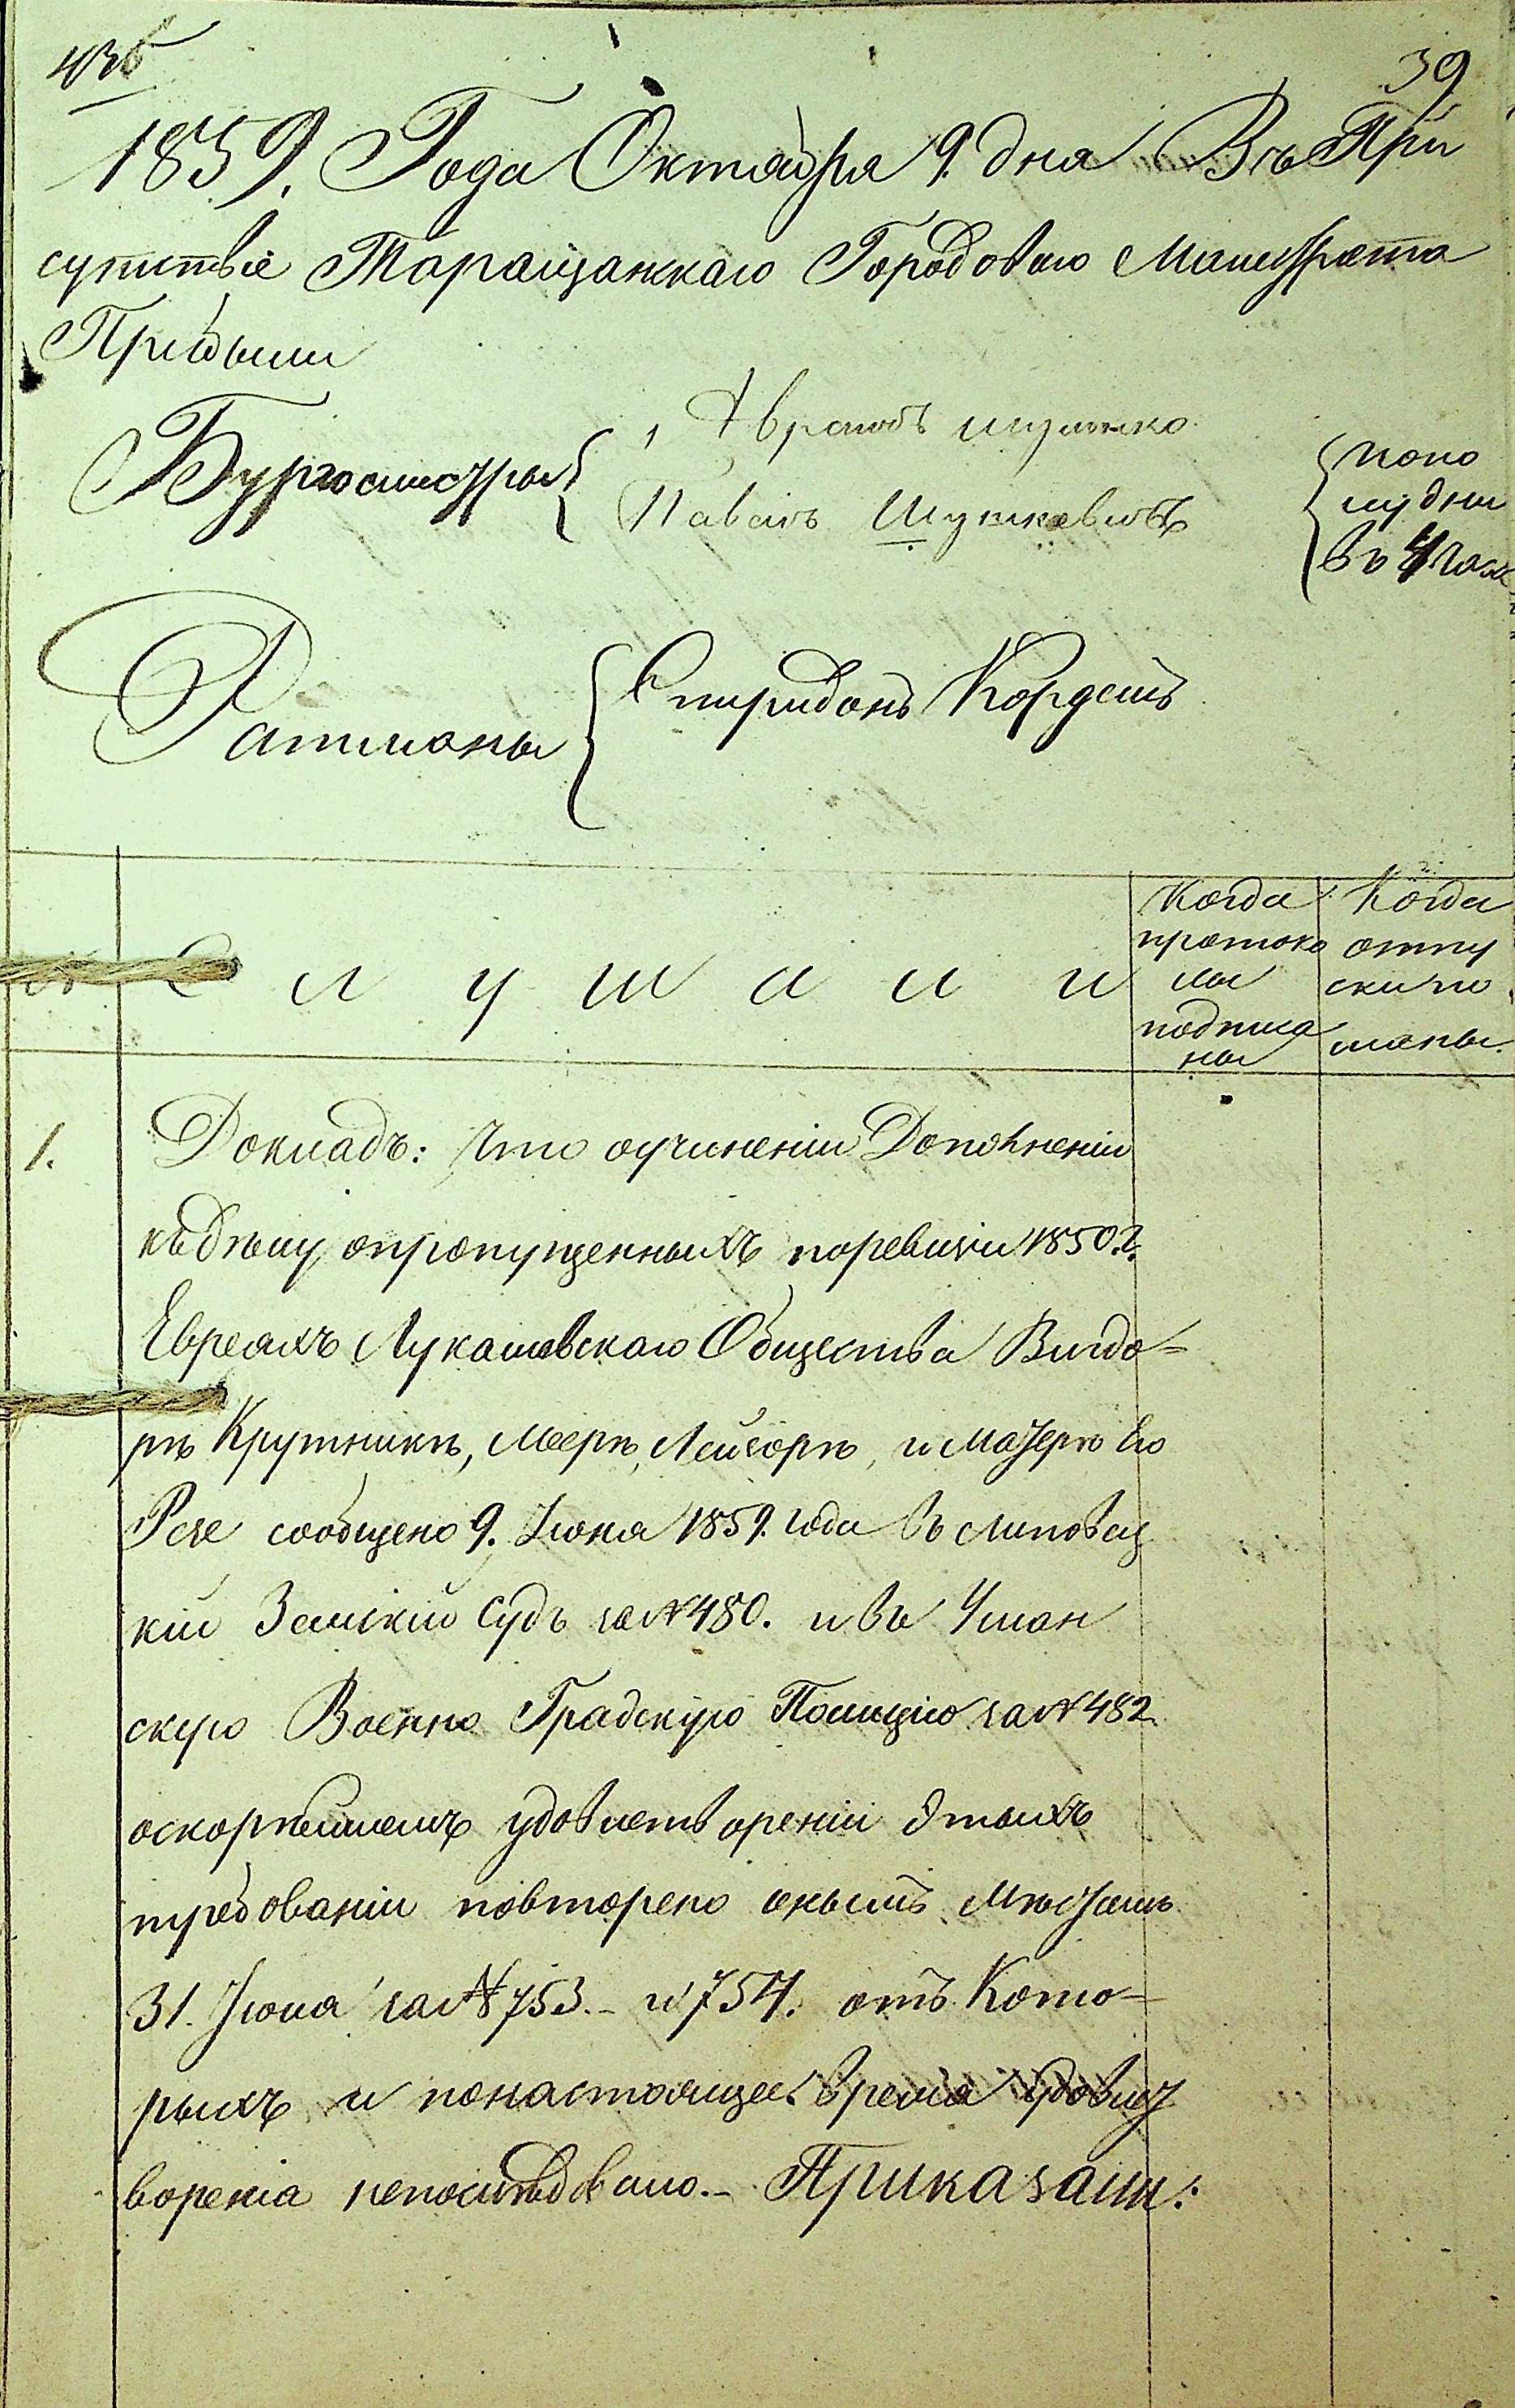 39
1859. Года Октября 9. дня Въ При
сутствіе Таращанскаго Городоваго Магистрата
Прибыли
Бургомистры
Павелъ
Попо
лудни
въ 4 часа
Ратманы
Спиридонъ
С л у ш а л и
Когда
протоко
лы
подписа
ны
Когда
отпу
ски по
сланы.
1.
Докладъ: Что оучиненіи Дополненіи
къ дѣлу опропущенныхъ поревизіи 1850 г.
Евреяхъ Лукашовскаго Общества Вигдо-
рѣ Крутникѣ, Меерѣ, Лейзорѣ, и Матерѣ Его
сообщено 9. Іюня 1859. года въ Липовец
кій Земскій Судъ за № 480. и въ Уман
скую Военно Градскую Полицію за № 482
оскорѣйшемъ удовлетвореніи этыхъ
требованіи повторено онымъ Мѣстамъ
31. Іюля за № 753. - и 754. отъ Кото-
рыхъ и понастоящее время удовлет
воренія непослѣдовало. - Приказали: